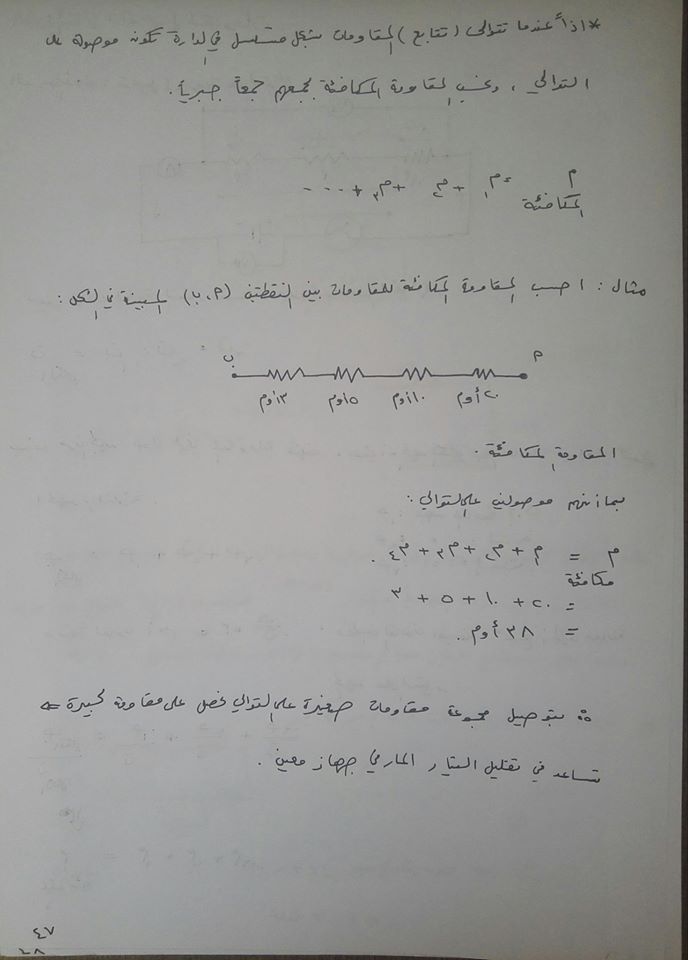 * اذاً عندما تتوالى (تتابع) المقاومات بشكل متسلسل في الدارة تكون موصولة على
التوالي ، ونحسب المقاومة المكافئة بجمعهم جمعاً جبرياً .
م المكافئة = م١ + م٢ + م٣ + ...
مثال : احسب المقاومة المكافئة للمقاومات بين النقطتين (م ، ب) المبينة في الشكل :
ب م
٣ اوم ٥ اوم ١٠ اوم ٢٠ أوم
المقاومة المكافئة .
بما أنهم موصولين على التوالي :
م مكافئة = م١ + م٢ + م٣ + م٤ .
= ٢٠ + ١٠ + ٥ + ٣
= ٣٨ أوم .
∴ بتوصيل مجموعة مقاومات صغيرة على التوالي نحصل على مقاومة كبيرة ⇐
تساعد في تقليل التيار المار في جهاز معين .
٤٧
٤٨